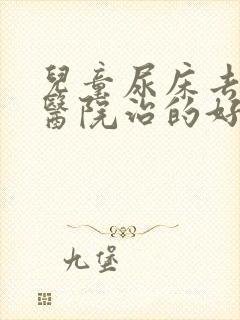 兒童尿床去
醫院治的好
九堡